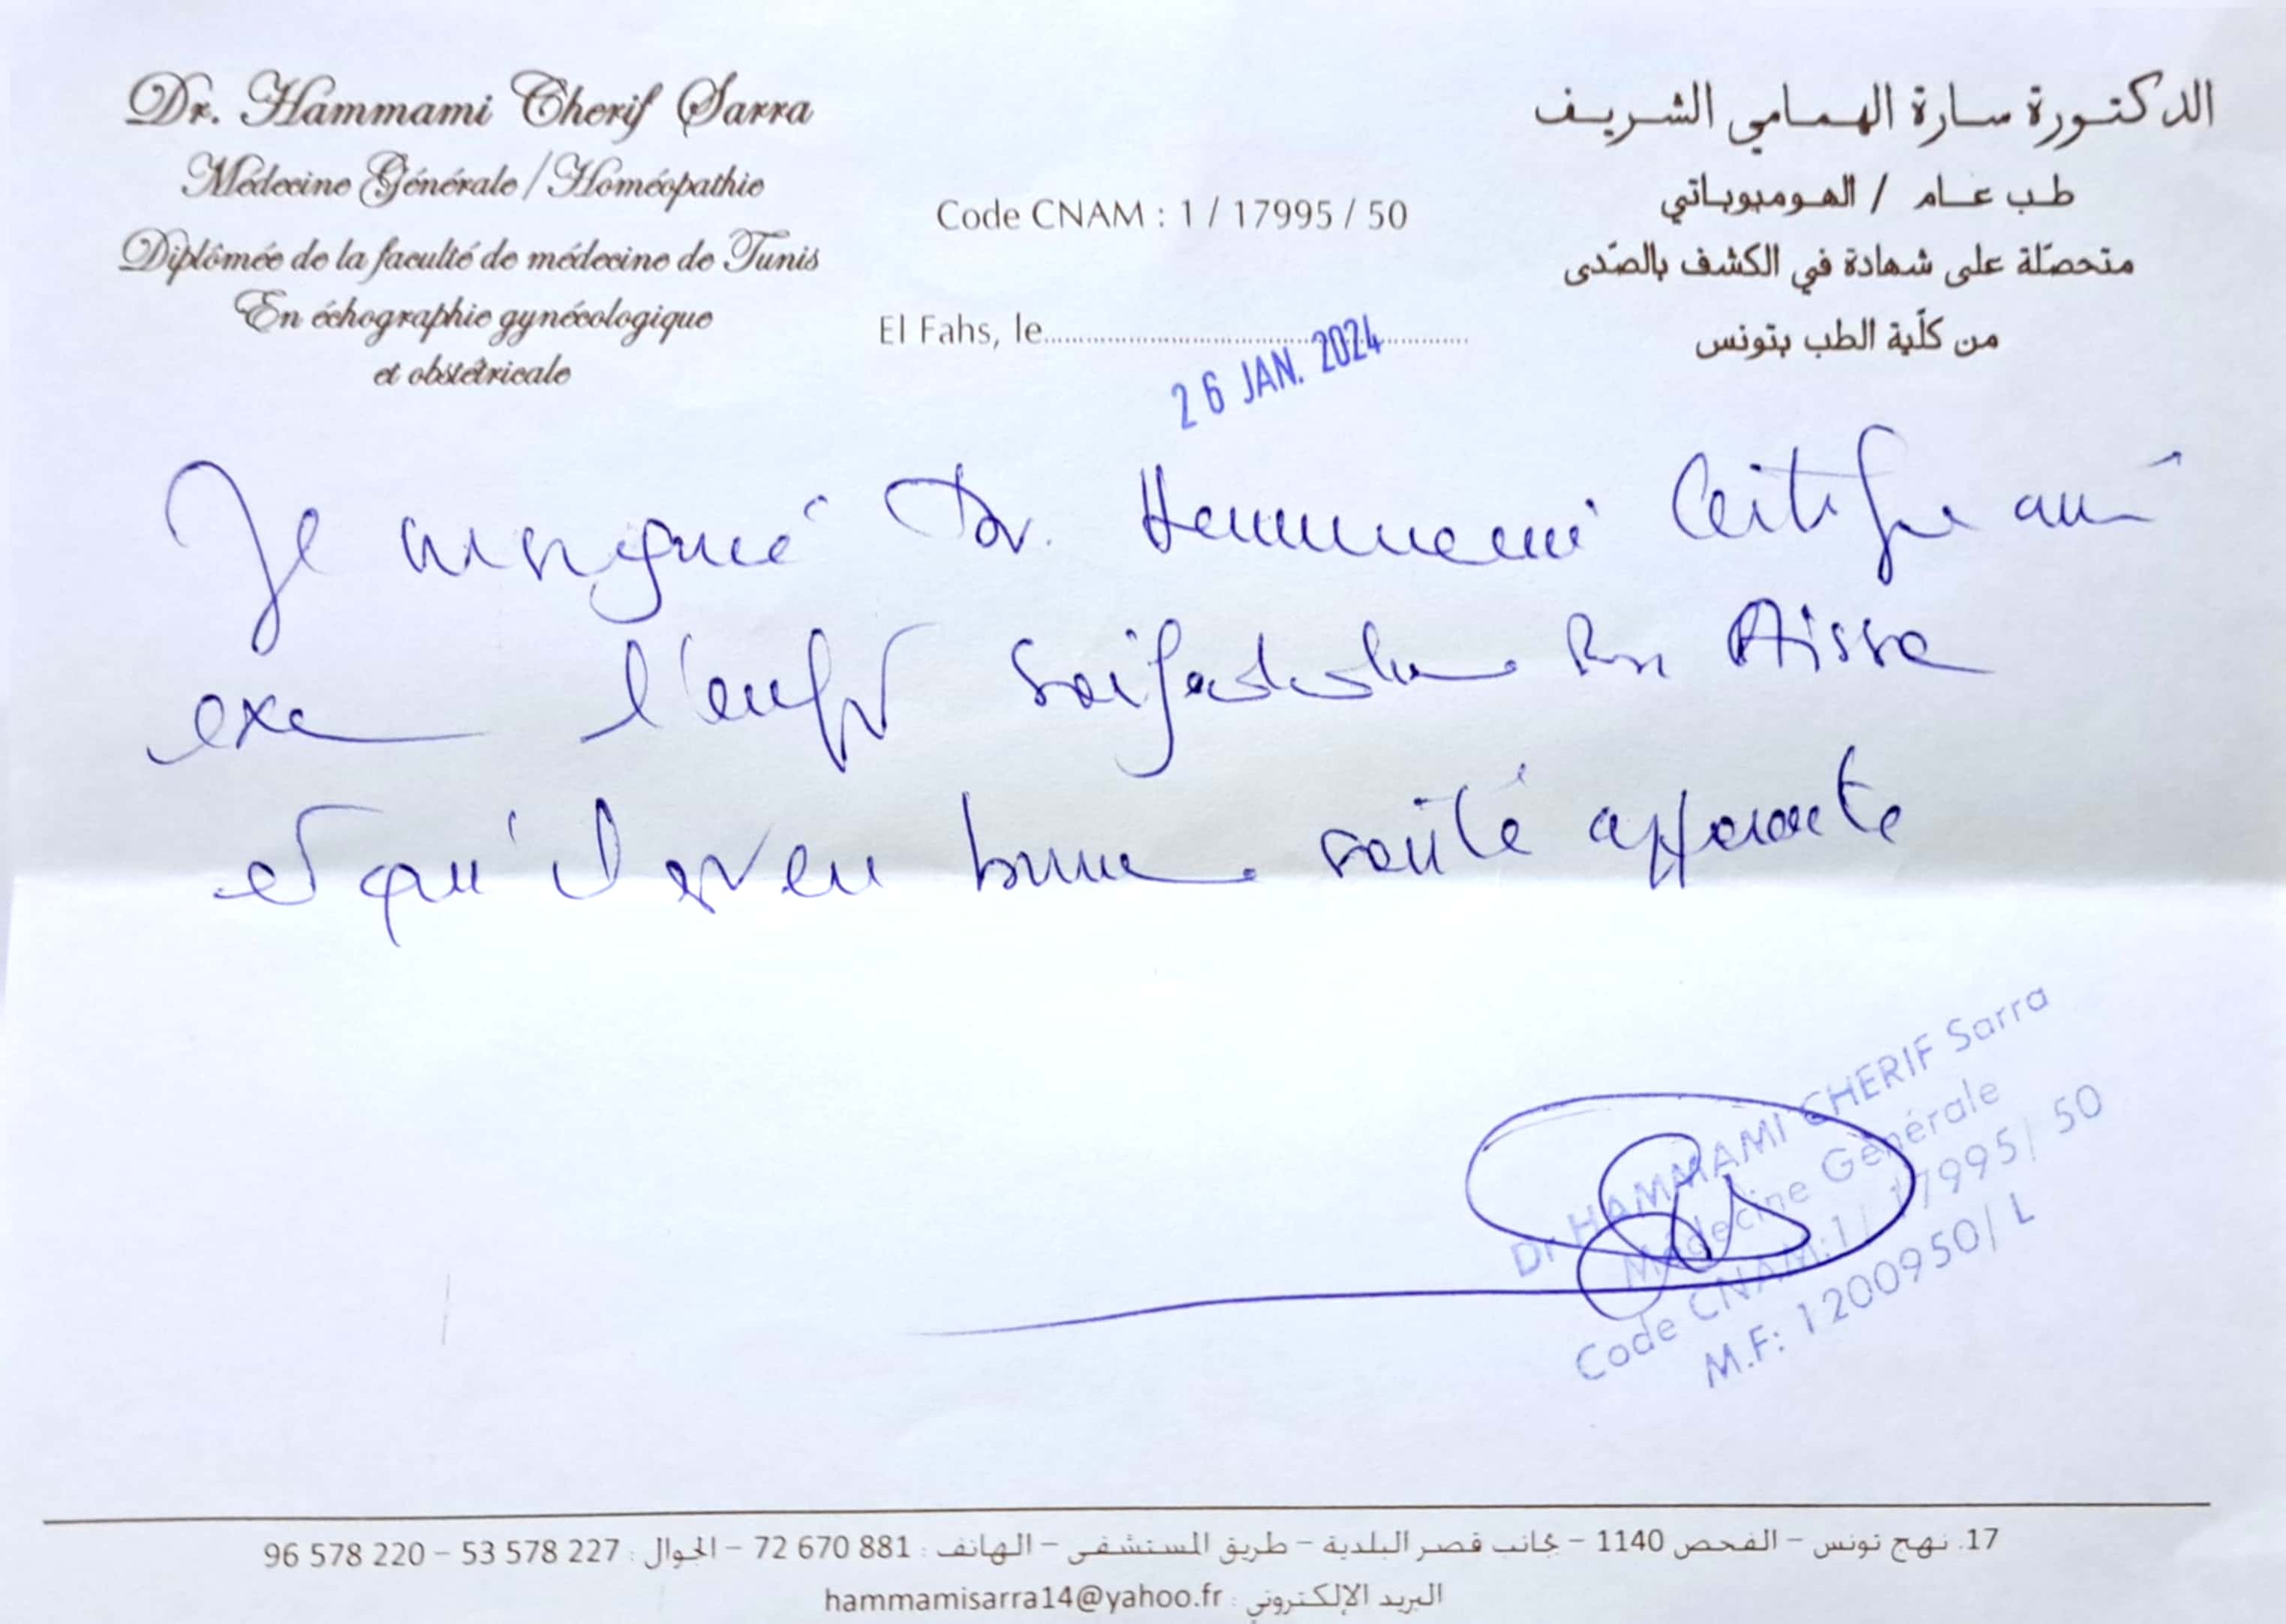 Dr. Hammami Cherif Sarra
Médecine Générale / Homéopathie
Diplômée de la faculté de médecine de Tunis
En échographie gynécologique
et obstétricale
Code CNAM : 1 / 17995 / 50
El Fahs, le
26 JAN. 2024
الدكتورة سارة الهمامي الشريف
طب عام / الهوميوباتي
متحصّلة على شهادة في الكشف بالصّدى
من كلّية الطب بتونس
Je Dr. Hammami Certifie
exa l'enft Ben Aissa
et qu'il est en bonne santé apparente
Dr HAMMAMI CHERIF Sarra
Médecine Générale
Code CNAM:1/ 17995/ 50
M.F: 1200950/ L
17. نهج تونس - الفحص 1140 - بجانب قصر البلدية - طريق المستشفى - الهاتف : 881 670 72 - الجوال : 227 578 53 - 220 578 96
البريد الإلكتروني : hammamisarra14@yahoo.fr